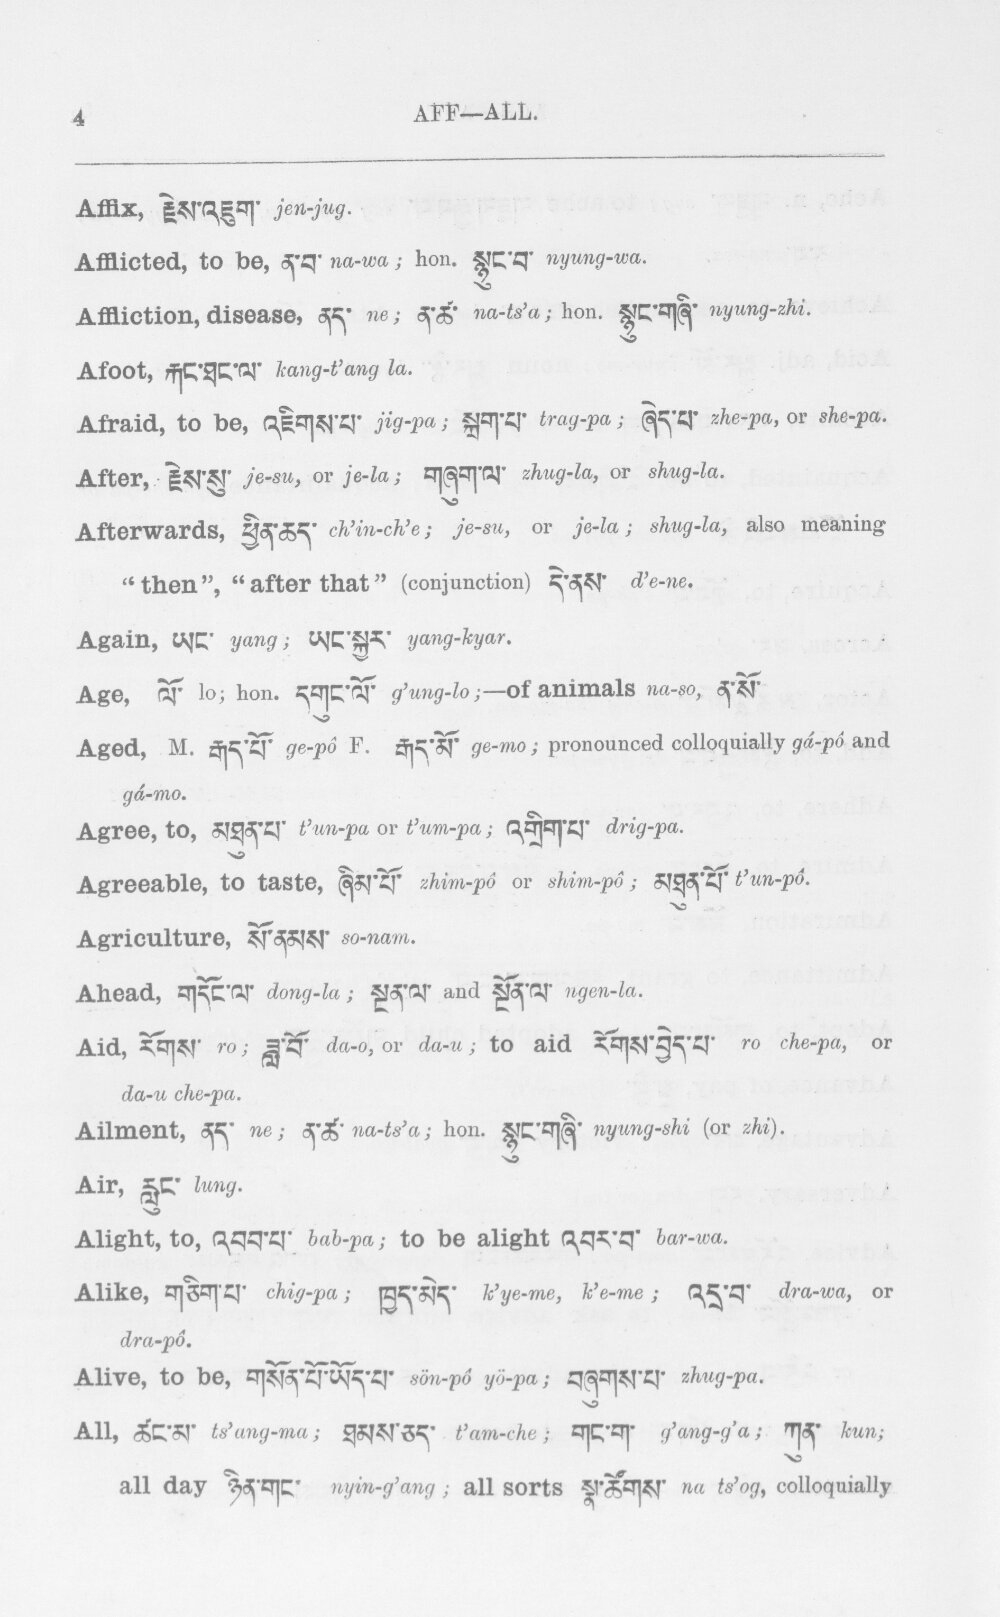 4 AFF—ALL.
Affix, རྗེས་འཇུག་ jen-jug.
Afflicted, to be, ན་བ་ na-wa ; hon. སྙུང་བ་ nyung-wa.
Affliction, disease, ནད་ ne ; ན་ཚ་ na-ts’a ; hon. སྙུང་གཞི་ nyung-zhi.
Afoot, རྐང་ཐང་ལ་ kang-t’ang la.
Afraid, to be, འཇིགས་པ་ jig-pa ; སྐྲག་པ་ trag-pa ; ཞེད་པ་ zhe-pa, or she-pa.
After, རྗེས་སུ་ je-su, or je-la ; གཞུག་ལ་ zhug-la, or shug-la.
Afterwards, ཕྱིན་ཆད་ ch’in-ch’e ; je-su, or je-la ; shug-la, also meaning
“then”, “after that” (conjunction) དེ་ནས་ d’e-ne.
Again, ཡང་ yang ; ཡང་སྐྱར་ yang-kyar.
Age, ལོ་ lo ; hon. དགུང་ལོ་ g’ung-lo ;—of animals na-so, ན་སོ་
Aged, M. རྒད་པོ་ ge-pó F. རྒད་མོ་ ge-mo ; pronounced colloquially gá-pó and
gá-mo.
Agree, to, མཐུན་པ་ t’un-pa or t’um-pa ; འགྲིག་པ་ drig-pa.
Agreeable, to taste, ཞིམ་པོ་ zhim-pó or shim-pó ; མཐུན་པོ་ t’un-pó.
Agriculture, སོ་ནམས་ so-nam.
Ahead, གདོང་ལ་ dong-la ; སྔན་ལ་ and སྔོན་ལ་ ngen-la.
Aid, རོགས་ ro ; ཟླ་བོ་ da-o, or da-u ; to aid རོགས་བྱེད་པ་ ro che-pa, or
da-u che-pa.
Ailment, ནད་ ne ; ན་ཚ་ na-ts’a ; hon. སྙུང་གཞི་ nyung-shi (or zhi).
Air, རླུང་ lung.
Alight, to, འབབ་པ་ bab-pa ; to be alight འབར་བ་ bar-wa.
Alike, གཅིག་པ་ chig-pa ; ཁྱད་མེད་ k’ye-me, k’e-me ; འདྲ་བ་ dra-wa, or
dra-pó.
Alive, to be, གསོན་པོ་ཡོད་པ་ sön-pó yö-pa ; བཞུགས་པ་ zhug-pa.
All, ཚང་མ་ ts’ang-ma ; ཐམས་ཅད་ t’am-che ; གང་ག་ g’ang-g’a ; ཀུན་ kun ;
all day ཉིན་གང་ nyin-g’ang ; all sorts སྣ་ཚོགས་ na ts’og, colloquially